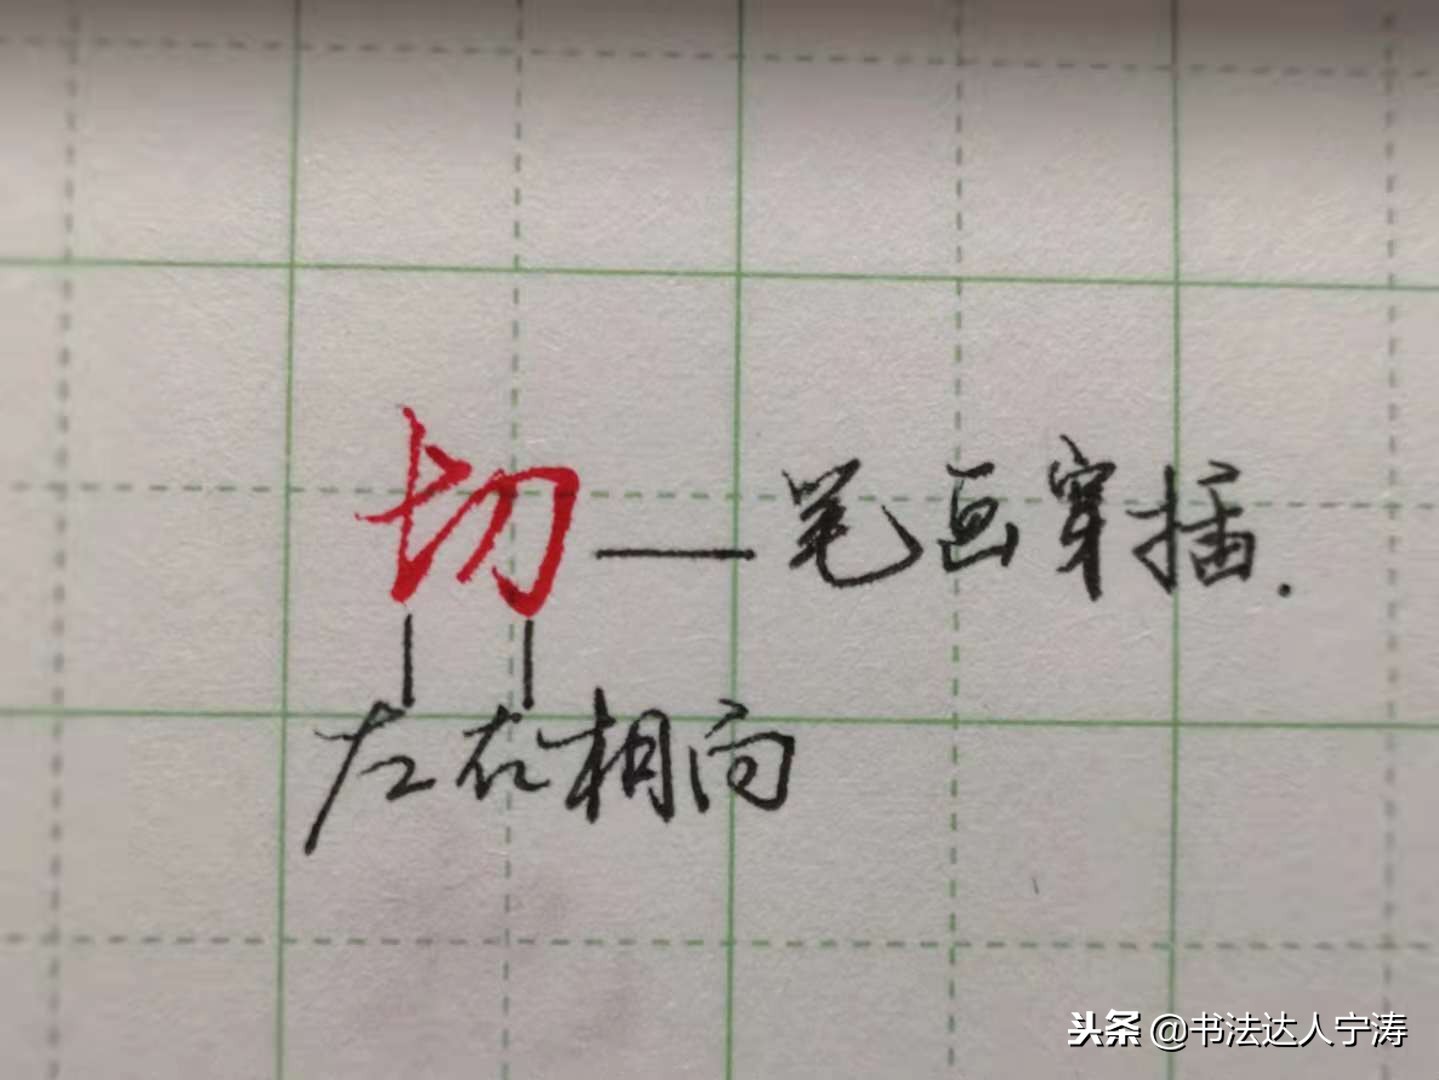 切 — 笔画穿插.
左右相向
头条 @书法达人宁涛